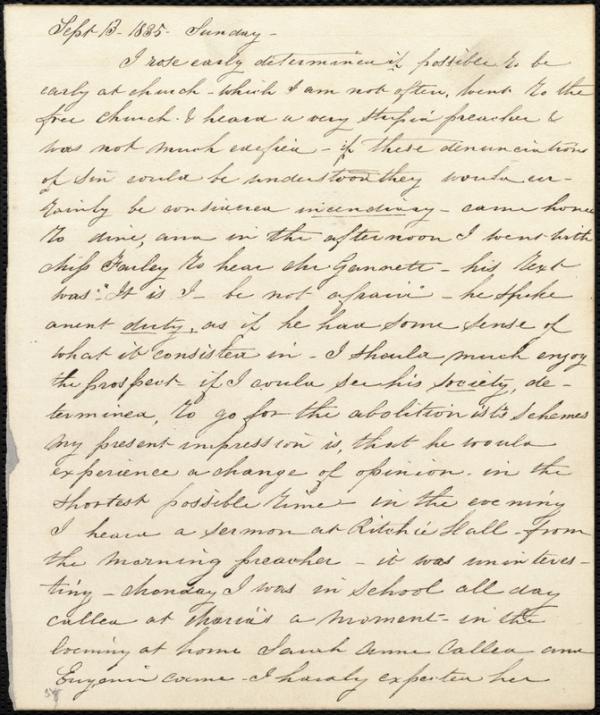 Sept 13 - 1835 - Sunday -
I rose early determined if possible to be
early at church - which I am not often, Went to the
free church & heard a very stupid preacher &
was not much edified - if these denunciations
of sin could be understood they would cer-
tainly be considered incendiary - came home
to dine, and in the afternoon I went with
Miss Farley to hear Mr Gannett - his text
was "It is I - be not afraid" - he spoke
anent duty, as if he had some sense of
what it consisted in - I should much enjoy
the prospect - if I could see his society, de-
termined, to go for the abolitionists schemes
my present impression is, that he would
experience a change of opinion - in the
shortest possible time - in the evening
I heard a sermon at Ritchie Hall - from
the morning preacher - it was uninteres-
ting - Monday I was in school all day
called at Maria's a moment - in the
Evening at home Sarah Anne called and
Eugenia came - I hardly expected her